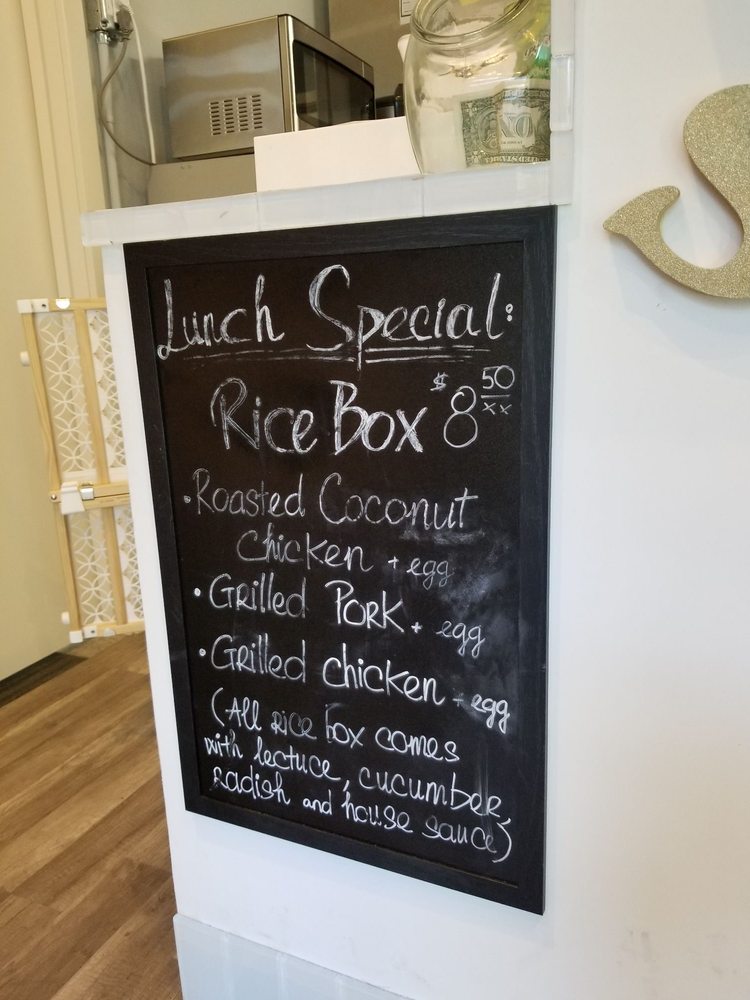 Lunch Special:
Rice Box $8 50/xx
• Roasted Coconut
chicken + egg
• Grilled Pork + egg
• Grilled chicken + egg
(All rice box comes
with lectuce, cucumber,
radish and house sauce)